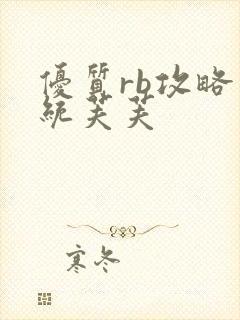 優質rb攻略
統芙芙
寒冬